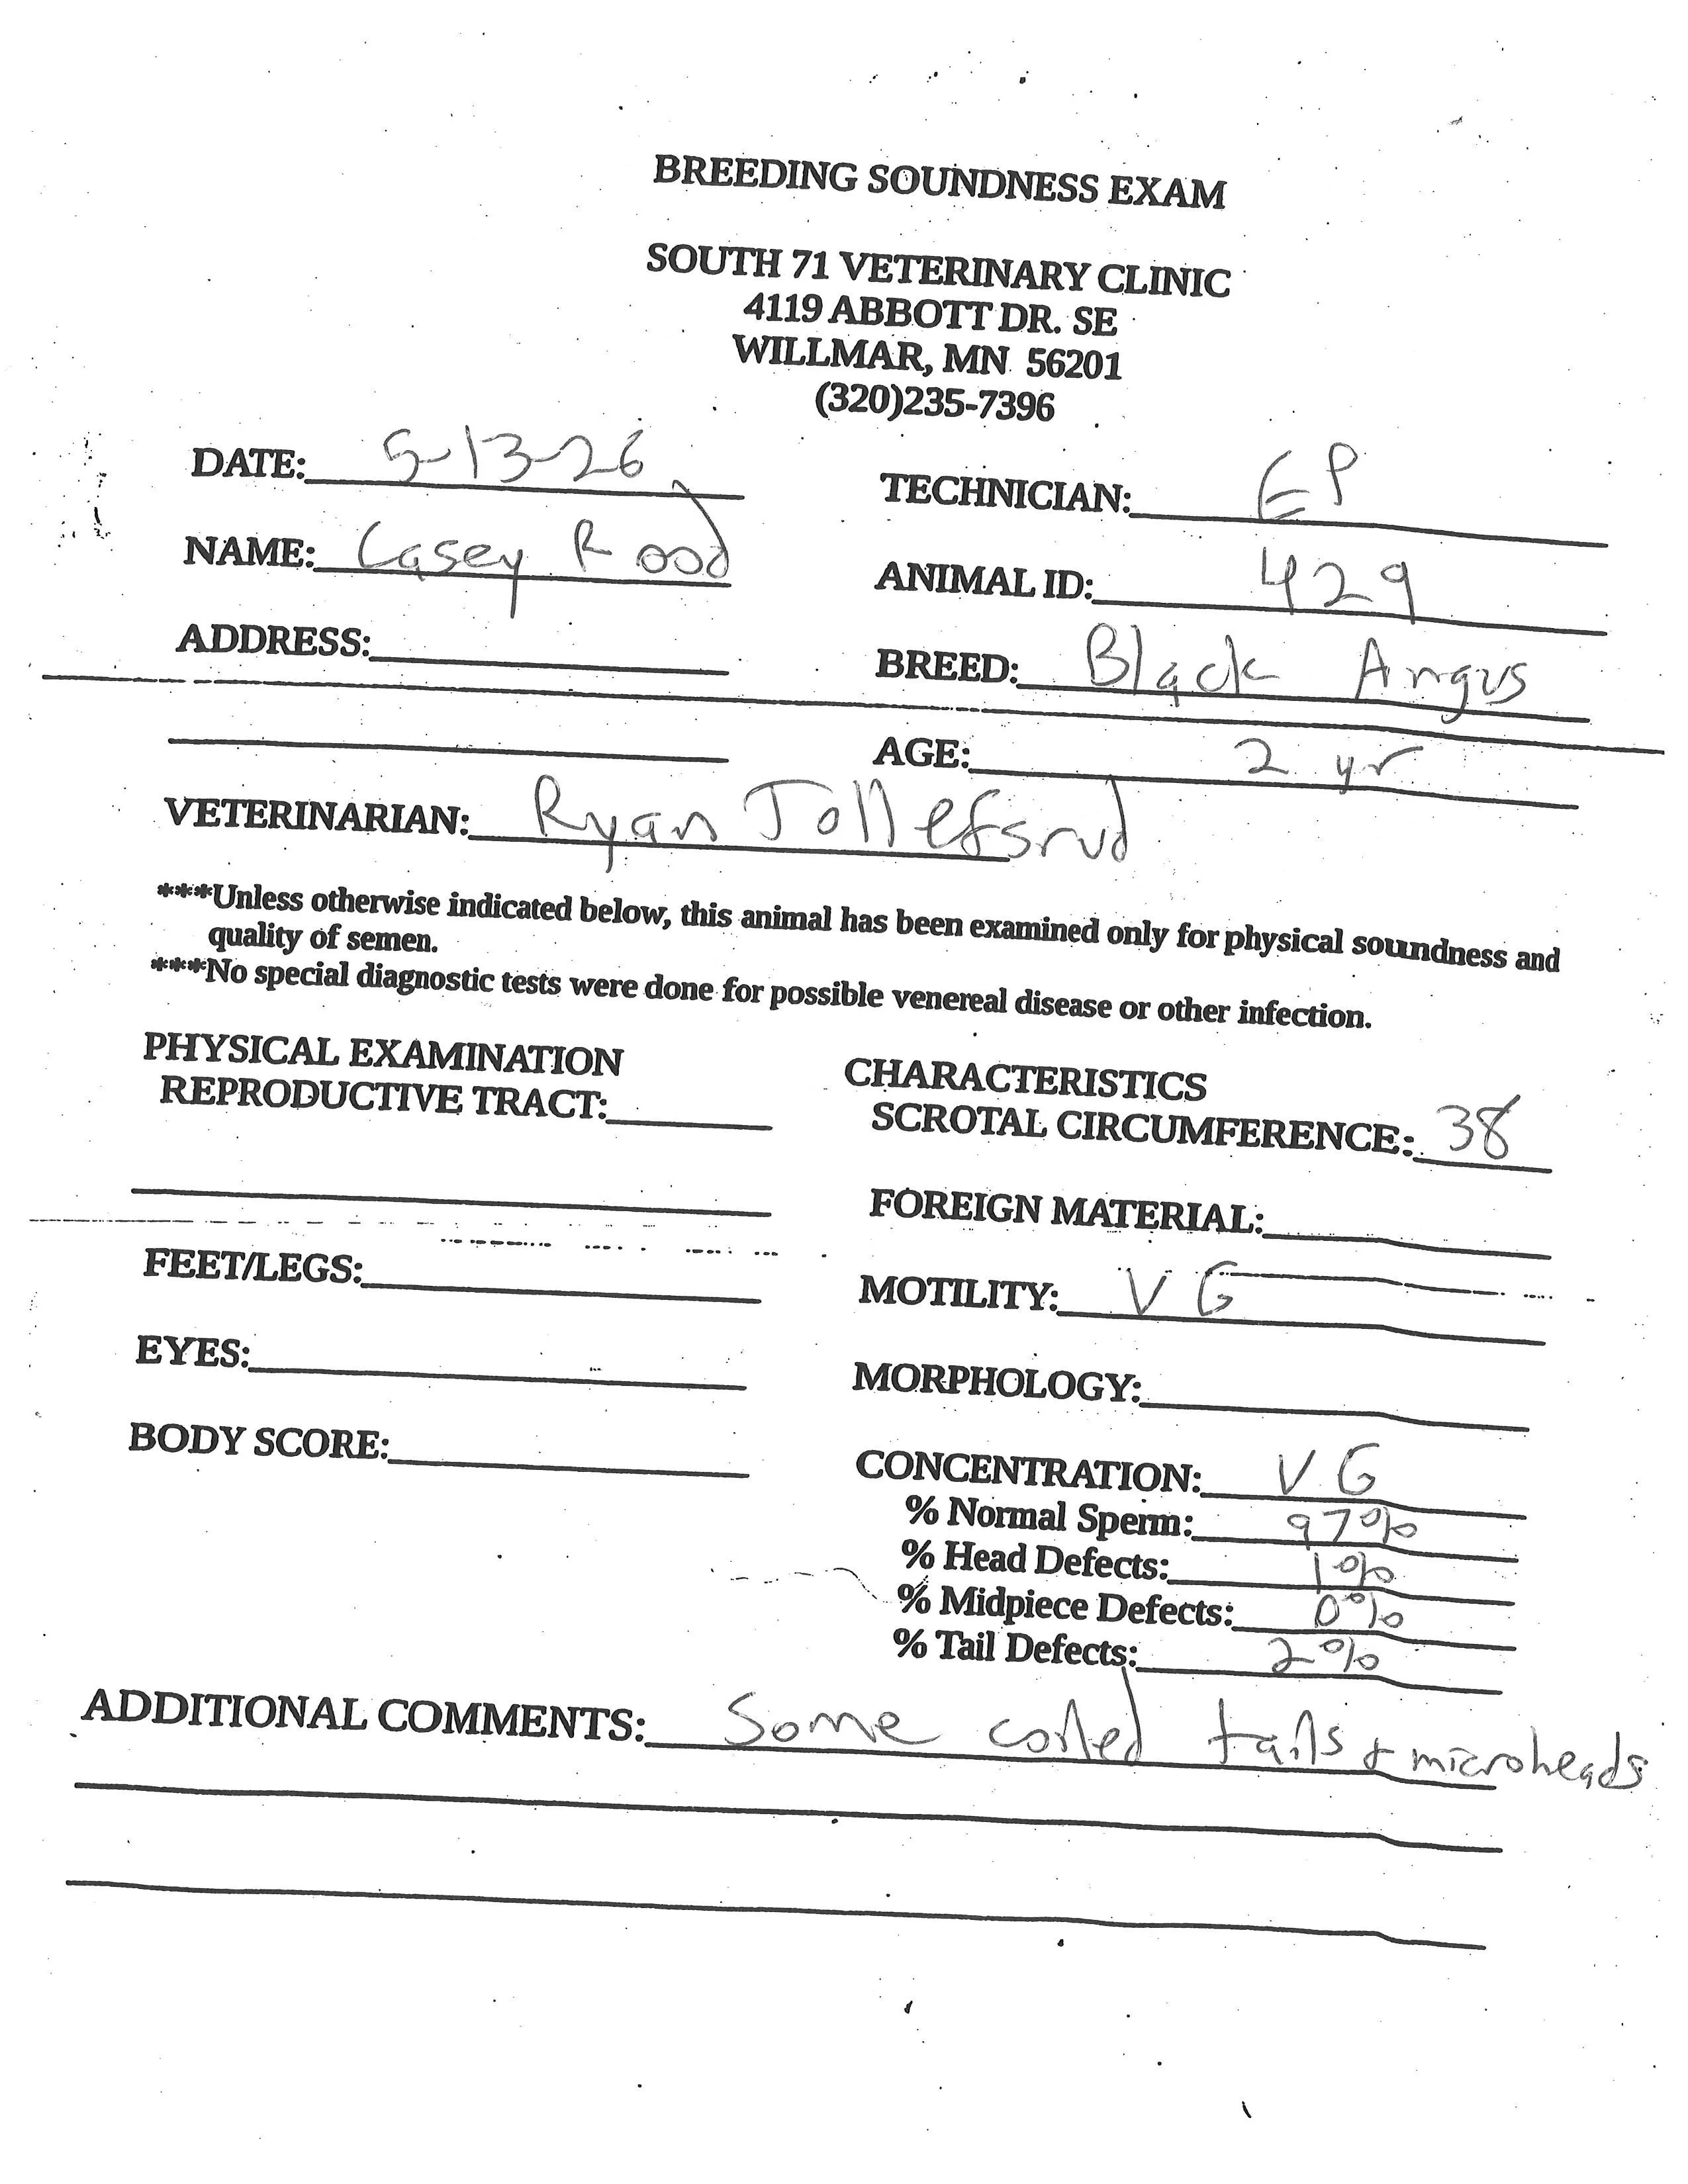 BREEDING SOUNDNESS EXAM
SOUTH 71 VETERINARY CLINIC
4119 ABBOTT DR. SE
WILLMAR, MN 56201
(320)235-7396
DATE: 5-13-26
TECHNICIAN: EP
NAME: Casey Rood
ANIMAL ID: 429
ADDRESS:
BREED: Black Angus
AGE: 2 yr
VETERINARIAN: Ryan Tollefsrud
***Unless otherwise indicated below, this animal has been examined only for physical soundness and
quality of semen.
***No special diagnostic tests were done for possible venereal disease or other infection.
PHYSICAL EXAMINATION
REPRODUCTIVE TRACT:
CHARACTERISTICS
SCROTAL CIRCUMFERENCE: 38
FOREIGN MATERIAL:
FEET/LEGS:
MOTILITY: VG
EYES:
MORPHOLOGY:
BODY SCORE:
CONCENTRATION: VG
% Normal Sperm: 97%
% Head Defects: 1%
% Midpiece Defects: 0%
% Tail Defects: 2%
ADDITIONAL COMMENTS: Some coiled tails & microheads